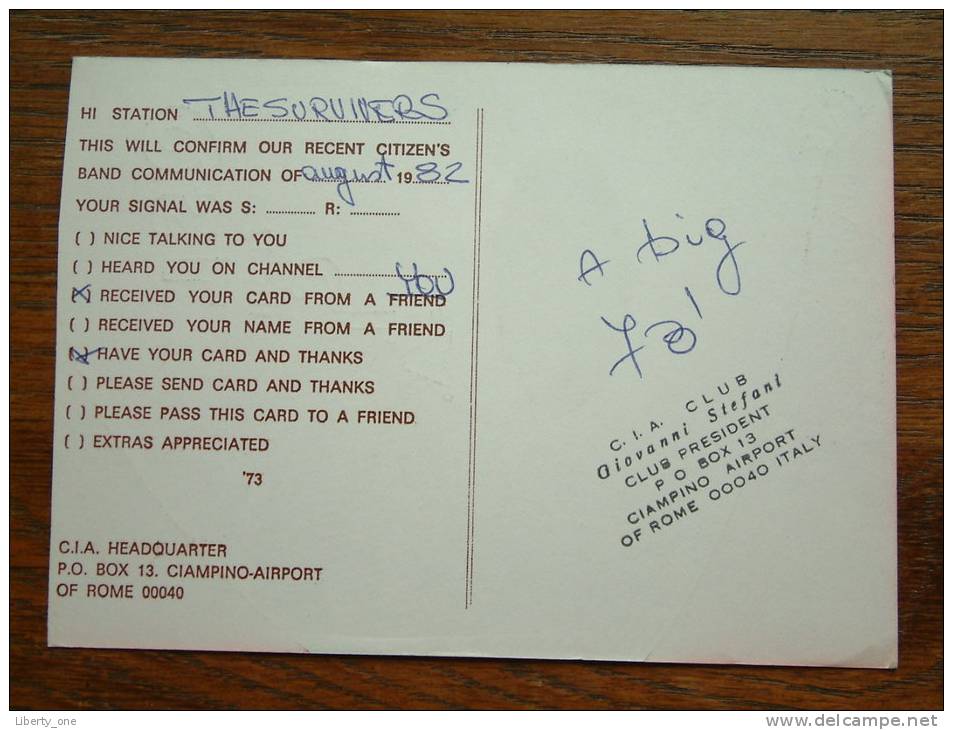 HI STATION THE SURVIVERS
THIS WILL CONFIRM OUR RECENT CITIZEN'S
BAND COMMUNICATION OF august 1982
YOUR SIGNAL WAS S: ............... R: ...............
( ) NICE TALKING TO YOU
( ) HEARD YOU ON CHANNEL ...............
YOU
(X) RECEIVED YOUR CARD FROM A FRIEND
( ) RECEIVED YOUR NAME FROM A FRIEND
(X) HAVE YOUR CARD AND THANKS
( ) PLEASE SEND CARD AND THANKS
( ) PLEASE PASS THIS CARD TO A FRIEND
( ) EXTRAS APPRECIATED
'73
C.I.A. HEADQUARTER
P.O. BOX 13. CIAMPINO-AIRPORT
OF ROME 00040
A big
73'
C.I.A. CLUB
Giovanni Stefani
CLUB PRESIDENT
P O BOX 13
CIAMPINO AIRPORT
OF ROME 00040 ITALY
Liberty_one
www.delcampe.net